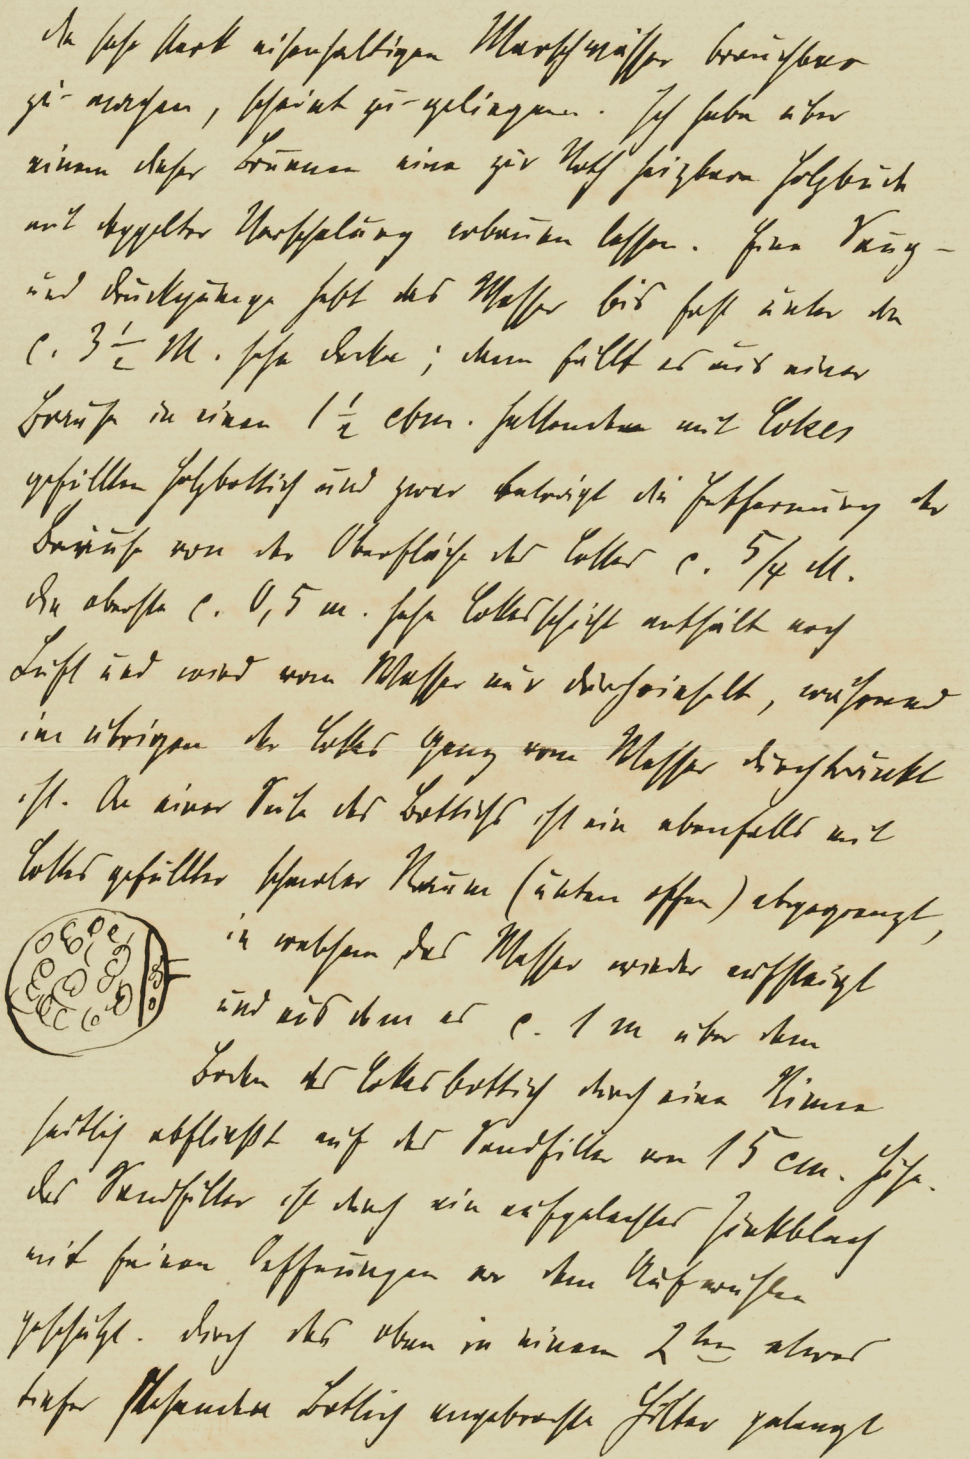 die sehr stark eisenhaltigen Marschwässer brauchbar
zu machen, scheint zu gelingen. Ich habe über
einem dieser Brunnen eine zur Noth heizbare Holzbude
mit doppelter Verschalung erbauen lassen. Eine Saug-
und Druckpumpe hebt das Wasser bis fast unter die
c. 3 1/2 M. hohe Decke; dann fällt es aus einer
Brause in einen 1 1/2 cbm. haltenden mit Cokes
gefüllten Holzbottich und zwar beträgt die Entfernung der
Brause von der Oberfläche des Cokes c. 5/4 M.
Die oberste c. 0,5 m. hohe Cokesschicht enthält noch
Luft und wird vom Wasser nur durchrieselt, während
im übrigen der Cokes ganz vom Wasser durchtränkt
ist. An einer Seite des Bottichs ist ein ebenfalls mit
Cokes gefüllter schmaler Raum (unten offen) abgegrenzt,
in welchem das Wasser wieder aufsteigt
und aus dem es c. 1 m über dem
Boden des Cokesbottich durch eine Rinne
seitlich abfließt auf das Sandfilter von 15 cm. Höhe.
Das Sandfilter ist durch ein aufgelegtes Zinkblech
mit feinen Oeffnungen vor dem Aufwühlen
geschützt. Durch das oben in einem 2ten etwas
tiefer stehenden Bottich angebrachte Filter gelangt